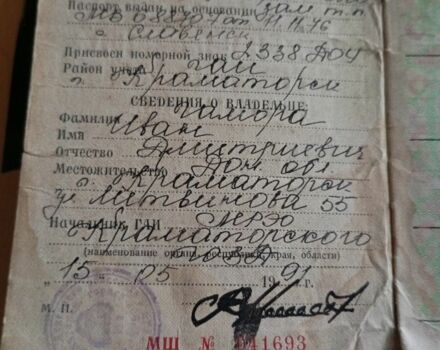 Паспорт выдан на основании зам т.п.
МВ 088701 от 11.11.76
г. Славянск
Присвоен номерной знак Д 338 ДОЧ
Район учета ГАИ
г. Краматорск
СВЕДЕНИЯ О ВЛАДЕЛЬЦЕ:
Фамилия
Имя Иван
Отчество Дмитриевич
Местожительство Дон. обл
г. Краматорск
ул. Литвинова 55
Начальник ГАИ МРЭО
Краматорского
(наименование органа, республики, края, области)
"15" 05 1991 г.
М. П.
МЩ № 641693